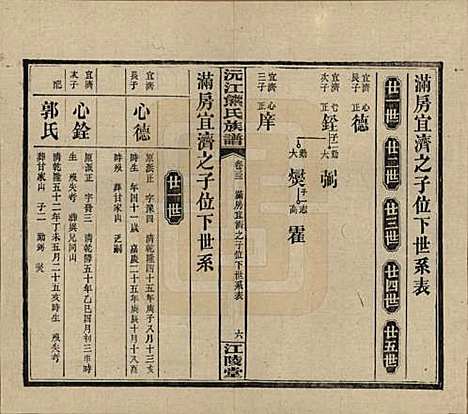 滿房宜濟之子位下世系表
廿一世
廿二世
廿三世
廿四世
廿五世
宜濟
長子 正
德
宜濟
次子 正
銓
子二 勤
大
弼
勤
大
燮
子 志
高
霍
宜濟
三子 正
庠
沅江熊氏族譜
卷三
滿房宜濟之子位下世系表
六
江陵堂
滿房宜濟之子位下世系
廿一世
宜濟
長子
心德
原派正 字 四 清乾隆四十五年庚子八月十三亥
時生 年四十一歲 嘉慶二十五年庚辰十月
時歿 葬甘家山 乏嗣
宜濟
次子
心銓
原派正 字 三 清乾隆五十年乙巳四月初二寅時
生 歿失考 葬
配
郭氏
清乾隆五十二年丁未五月二十五亥時生 歿失考
葬甘家山 子二 勤弼 燮